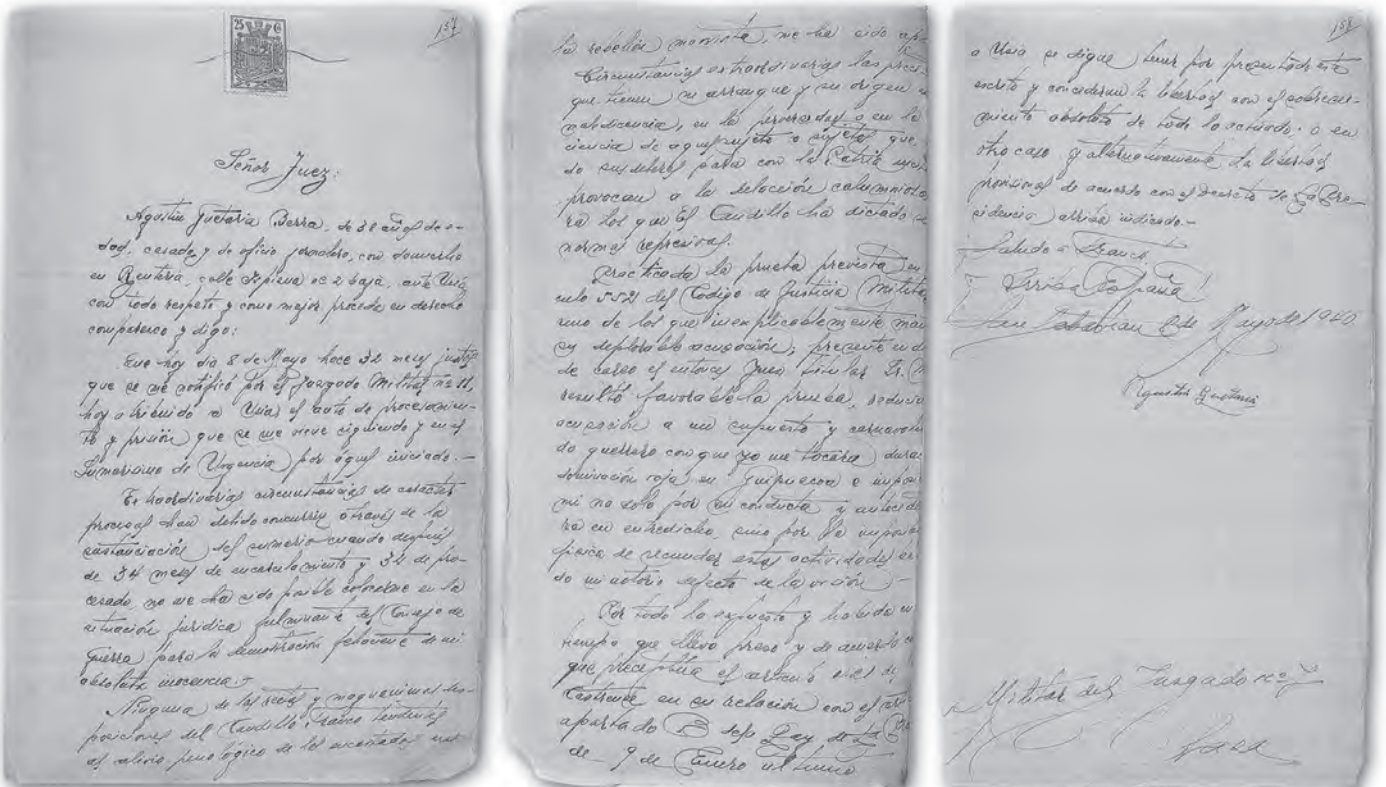 25 Cs
157
Señor Juez:
Agustin Guetaria Berra, de 38 años de e-
dad, casado y de oficio jornalero, con domicilio
en Renteria, calle 2 bajo, ante Usia
con todo respeto y como mejor proceda en derecho
comparezco y digo:
Que hoy dia 8 de Mayo hace 32 meses justos
que se me notificó por el Juzgado Militar nº 11,
hoy atribuido a Usia, el auto de procesamien-
to y prisión que se me viene siguiendo y en el
Sumarisimo de Urgencia por aquel iniciado.-
Extraordinarias circunstancias de carácter
procesal han debido concurrir a través de la
sustanciación del sumario cuando después
de 34 meses de encarcelamiento y 32 de pro-
cesado, no me ha sido posible colocarme en la
situación juridica fulminante del Consejo de
Guerra para la demostración fehaciente de mi
absoluta inocencia.-
Ninguna de las rectas y magnanimas dis-
posiciones del Caudillo Franco tendentes
al alivio penológico de los encartados en
la rebelión marxista, me ha sido ap-
Circunstancias extraordinarias las
que tienen su arranque y su origen
maledicencia, en la perversidad o en la
ciencia de aquel sujeto o sujetos que,
do sus deberes para con la Patria
provocan a la delación calumniosa
ra los que El Caudillo ha dictado
normas represivas.
Practicada la prueba prevista en
culo 552 del Codigo de Justicia Militar
uno de los que inexplicablemente man
su deplorable acusación, presente en
de careo el entonces Juez titular Sr.
resultó favorable la prueba,
acusación a un supuesto y
do guerrero con que yo me tocára dura
dominación roja en Guipuzcoa e
mi no solo por mi conducta y antece
ra en entredicho, sino por la imposi
fisica de secundar estas actividades
do mi notorio defecto de la visión.-
Por todo lo expuesto y habida
tiempo que llevo preso y de acuerdo
que preceptúa el articulo de
Castrense en su relación con el
apartado B de la Ley de la
de 9 de Enero ultimo
158
a Usia se digne tener por presentado este
escrito y concederme la libertad con el sobresei-
miento absoluto de todo lo actuado: o en
otro caso y alternativamente la libertad
provisional de acuerdo con el decreto de La Pre-
sidencia arriba indicado.-
Saludo a Franco
¡Arriba España!
San Sebastian 8 de Mayo de 1940
Agustin Guetaria
Militar del Juzgado nº